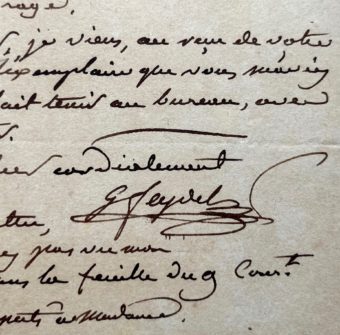 rage.
je viens, au reçu de votre
exemplaire que vous m'aviez
fait tenir au bureau, avec
cordialement
G Feydel
pas vu mon
la feuille du 9 Cour.t
à Madame.